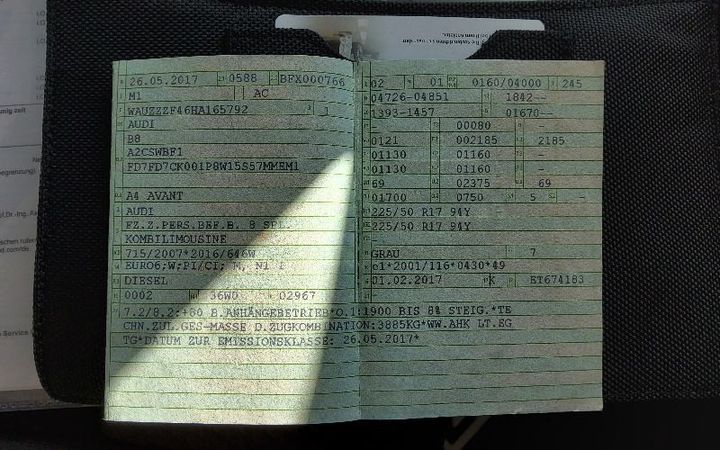 26.05.2017 0588 BFX000766
M1 AC
WAUZZZF46HA165792 3
AUDI
B8
A2CSWBF1
FD7FD7CK001P8W15S57MMEM1
A4 AVANT
AUDI
FZ.Z.PERS.BEF.B. 8 SPL.
KOMBILIMOUSINE
715/2007*2016/646W
EURO6;W;PI/CI; M, N1 I
DIESEL
0002 36W0 02967
02 01 0160/04000 245
04726-04851 1842--
1393-1457 01670--
- 00080 -
0121 002185 2185
01130 01160 -
01130 01160 -
69 02375 69
01700 0750 5 -
225/50 R17 94Y
225/50 R17 94Y
-
GRAU 7
e1*2001/116*0430*49
01.02.2017 K ET674183
7.2/8.2:+80 B.ANHÄNGEBETRIEB*O.1:1900 BIS 8% STEIG.*TE
CHN.ZUL.GES-MASSE D.ZUGKOMBINATION:3885KG*WW.AHK LT.EG
TG*DATUM ZUR EMISSIONSKLASSE: 26.05.2017*